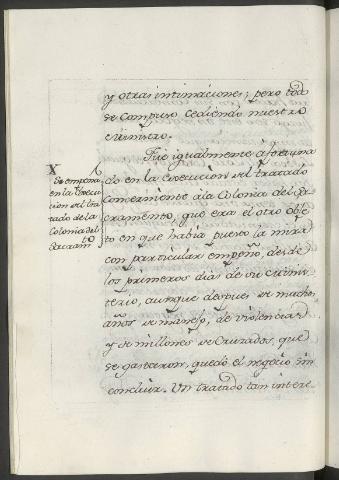 y otras intimaciones; pero todo
se compuso cediendo nuestro
Ministro.
Fue igualmente afortuna
do en la execucion del tratado
concerniente à la Colonia del Sa-
cramento, que era el otro obje
to en que habia puesto la mira
con particular empeño, desde
los primeros dias de su minis-
terio, aunque despues de muchos
años de manejo, de violencias
y de millones de Cruzados, que
se gastaron, quedó el negocio sin
concluir. Un tratado tan intere-
X
Se empeña
en la Execu
cion del tra
tado de la
Colonia del
Sacramto